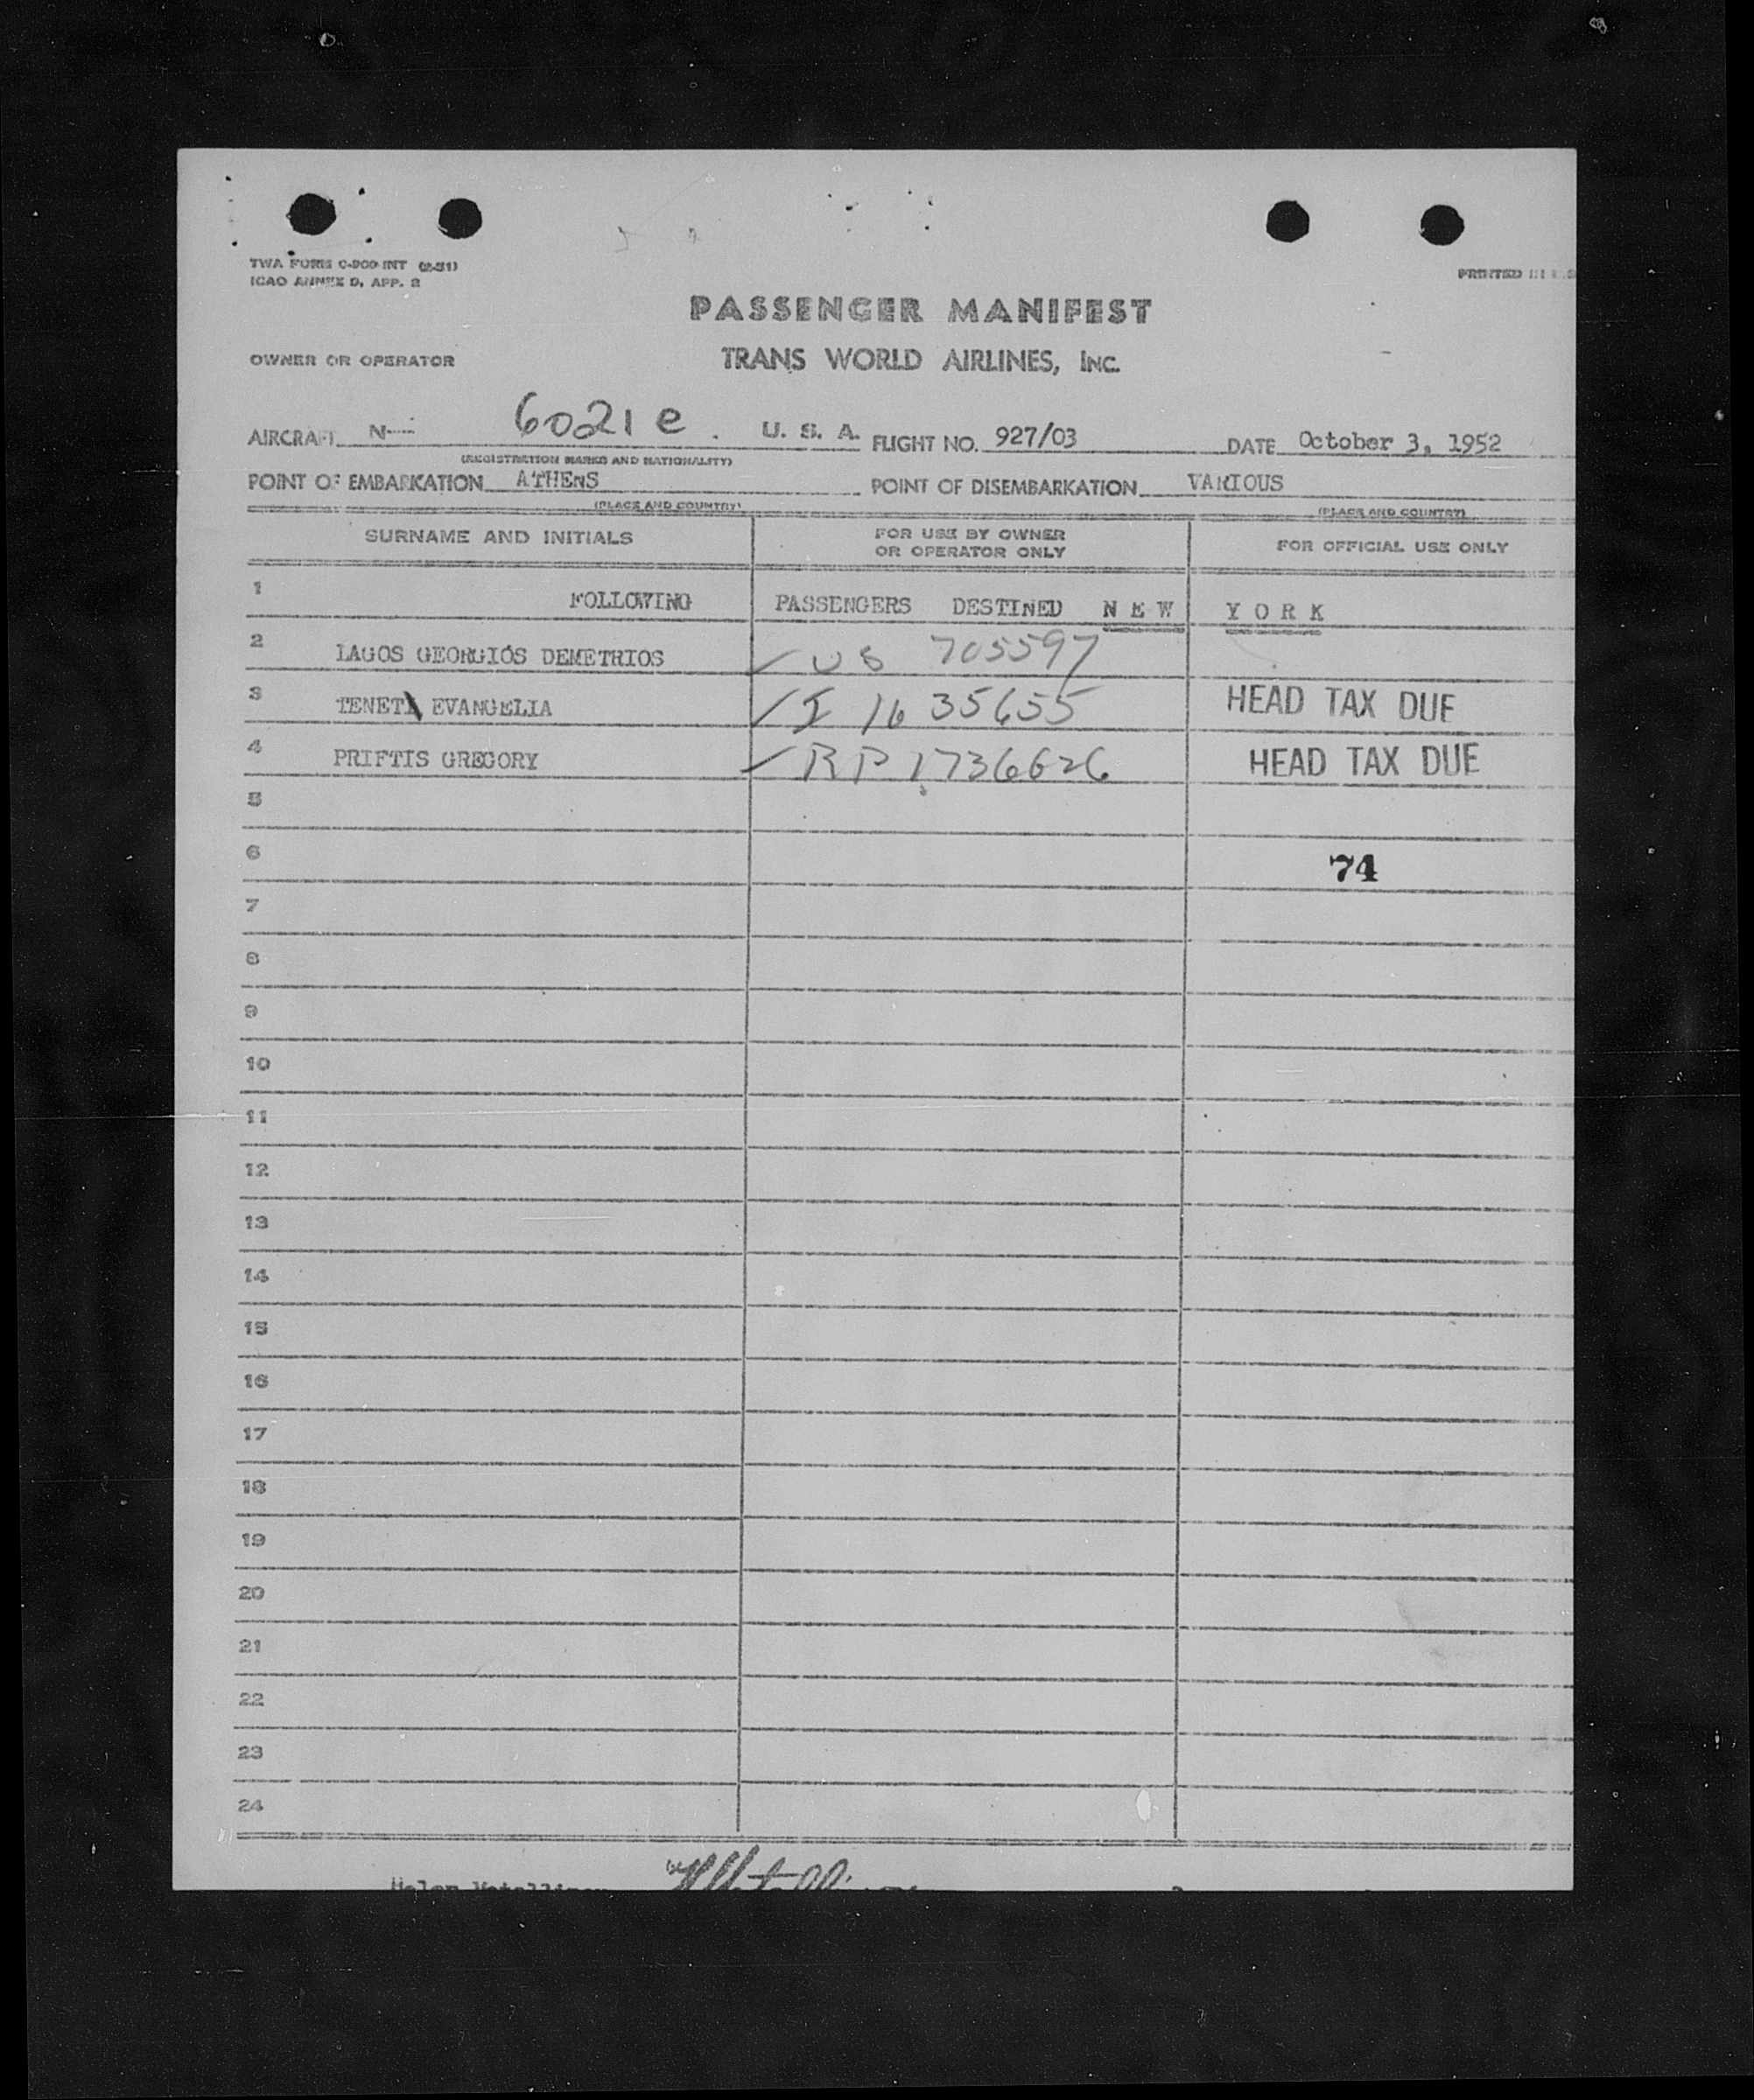 TWA FORM C-900 INT (2-51)
ICAO ANNEX D, APP. 2
PRINTED IN U.S.
PASSENGER MANIFEST
OWNER OR OPERATOR TRANS WORLD AIRLINES, INC.
AIRCRAFT N 6021 C . U. S. A. FLIGHT NO. 927/03 DATE October 3, 1952
(REGISTRATION MARKS AND NATIONALITY)
POINT OF EMBARKATION ATHENS POINT OF DISEMBARKATION VARIOUS
(PLACE AND COUNTRY) (PLACE AND COUNTRY)
SURNAME AND INITIALS FOR USE BY OWNER OR OPERATOR ONLY FOR OFFICIAL USE ONLY
1 FOLLOWING PASSENGERS DESTINED N E W Y O R K
2 LAGOS GEORGIOS DEMETRIOS ✓ US 705597
3 EVANGELIA ✓ I 1635655 HEAD TAX DUE
4 PRIFTIS GREGORY ✓ RP 1736626 HEAD TAX DUE
5
6 74
7
8
9
10
11
12
13
14
15
16
17
18
19
20
21
22
23
24
Helen